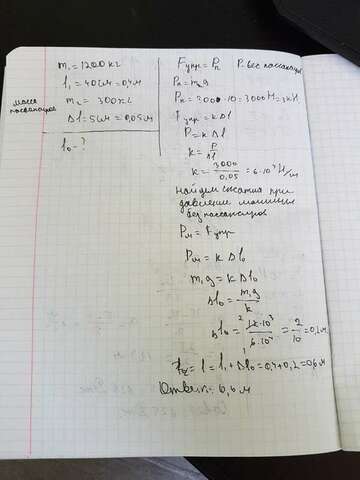 m₁ = 1200 кг
l₁ = 40 см = 0,4 м
масса пассажиров
m₂ = 300 кг
Δl = 5 см = 0,05 м
l₀ - ?
Fупр = Pп
P без пассажира
Pп = m₂g
Pп = 300·10 = 3000 Н = 3 кН
Fупр = kΔl
P = kΔl
k = P/Δl
k = 3000/0,05 = 6·10⁴ Н/м
найдем сжатие при
давлении машины
без пассажиров
Pм = Fупр
Pм = kΔl₀
m₁g = kΔl₀
Δl₀ = m₁g/k
Δl₀ = 12·10³/6·10⁴ = 2/10 = 0,2 м
l = l₁ + Δl₀ = 0,4 + 0,2 = 0,6 м
Ответ: 0,6 м